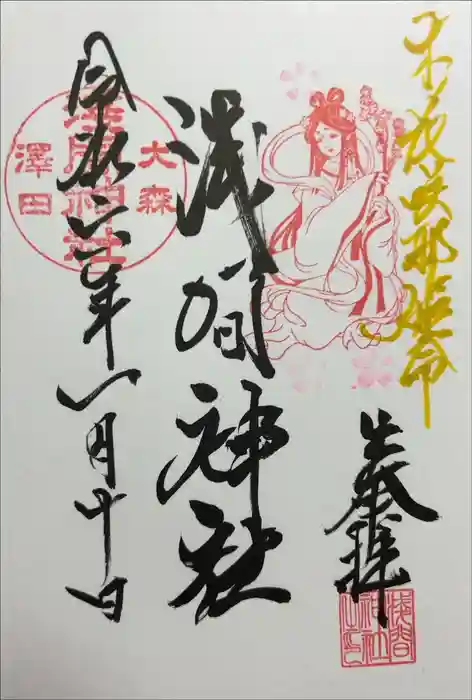 木花咲耶姫命
奉拝
浅間神社之印
浅間神社
大森
浅間神社
澤田
令和六年一月十日